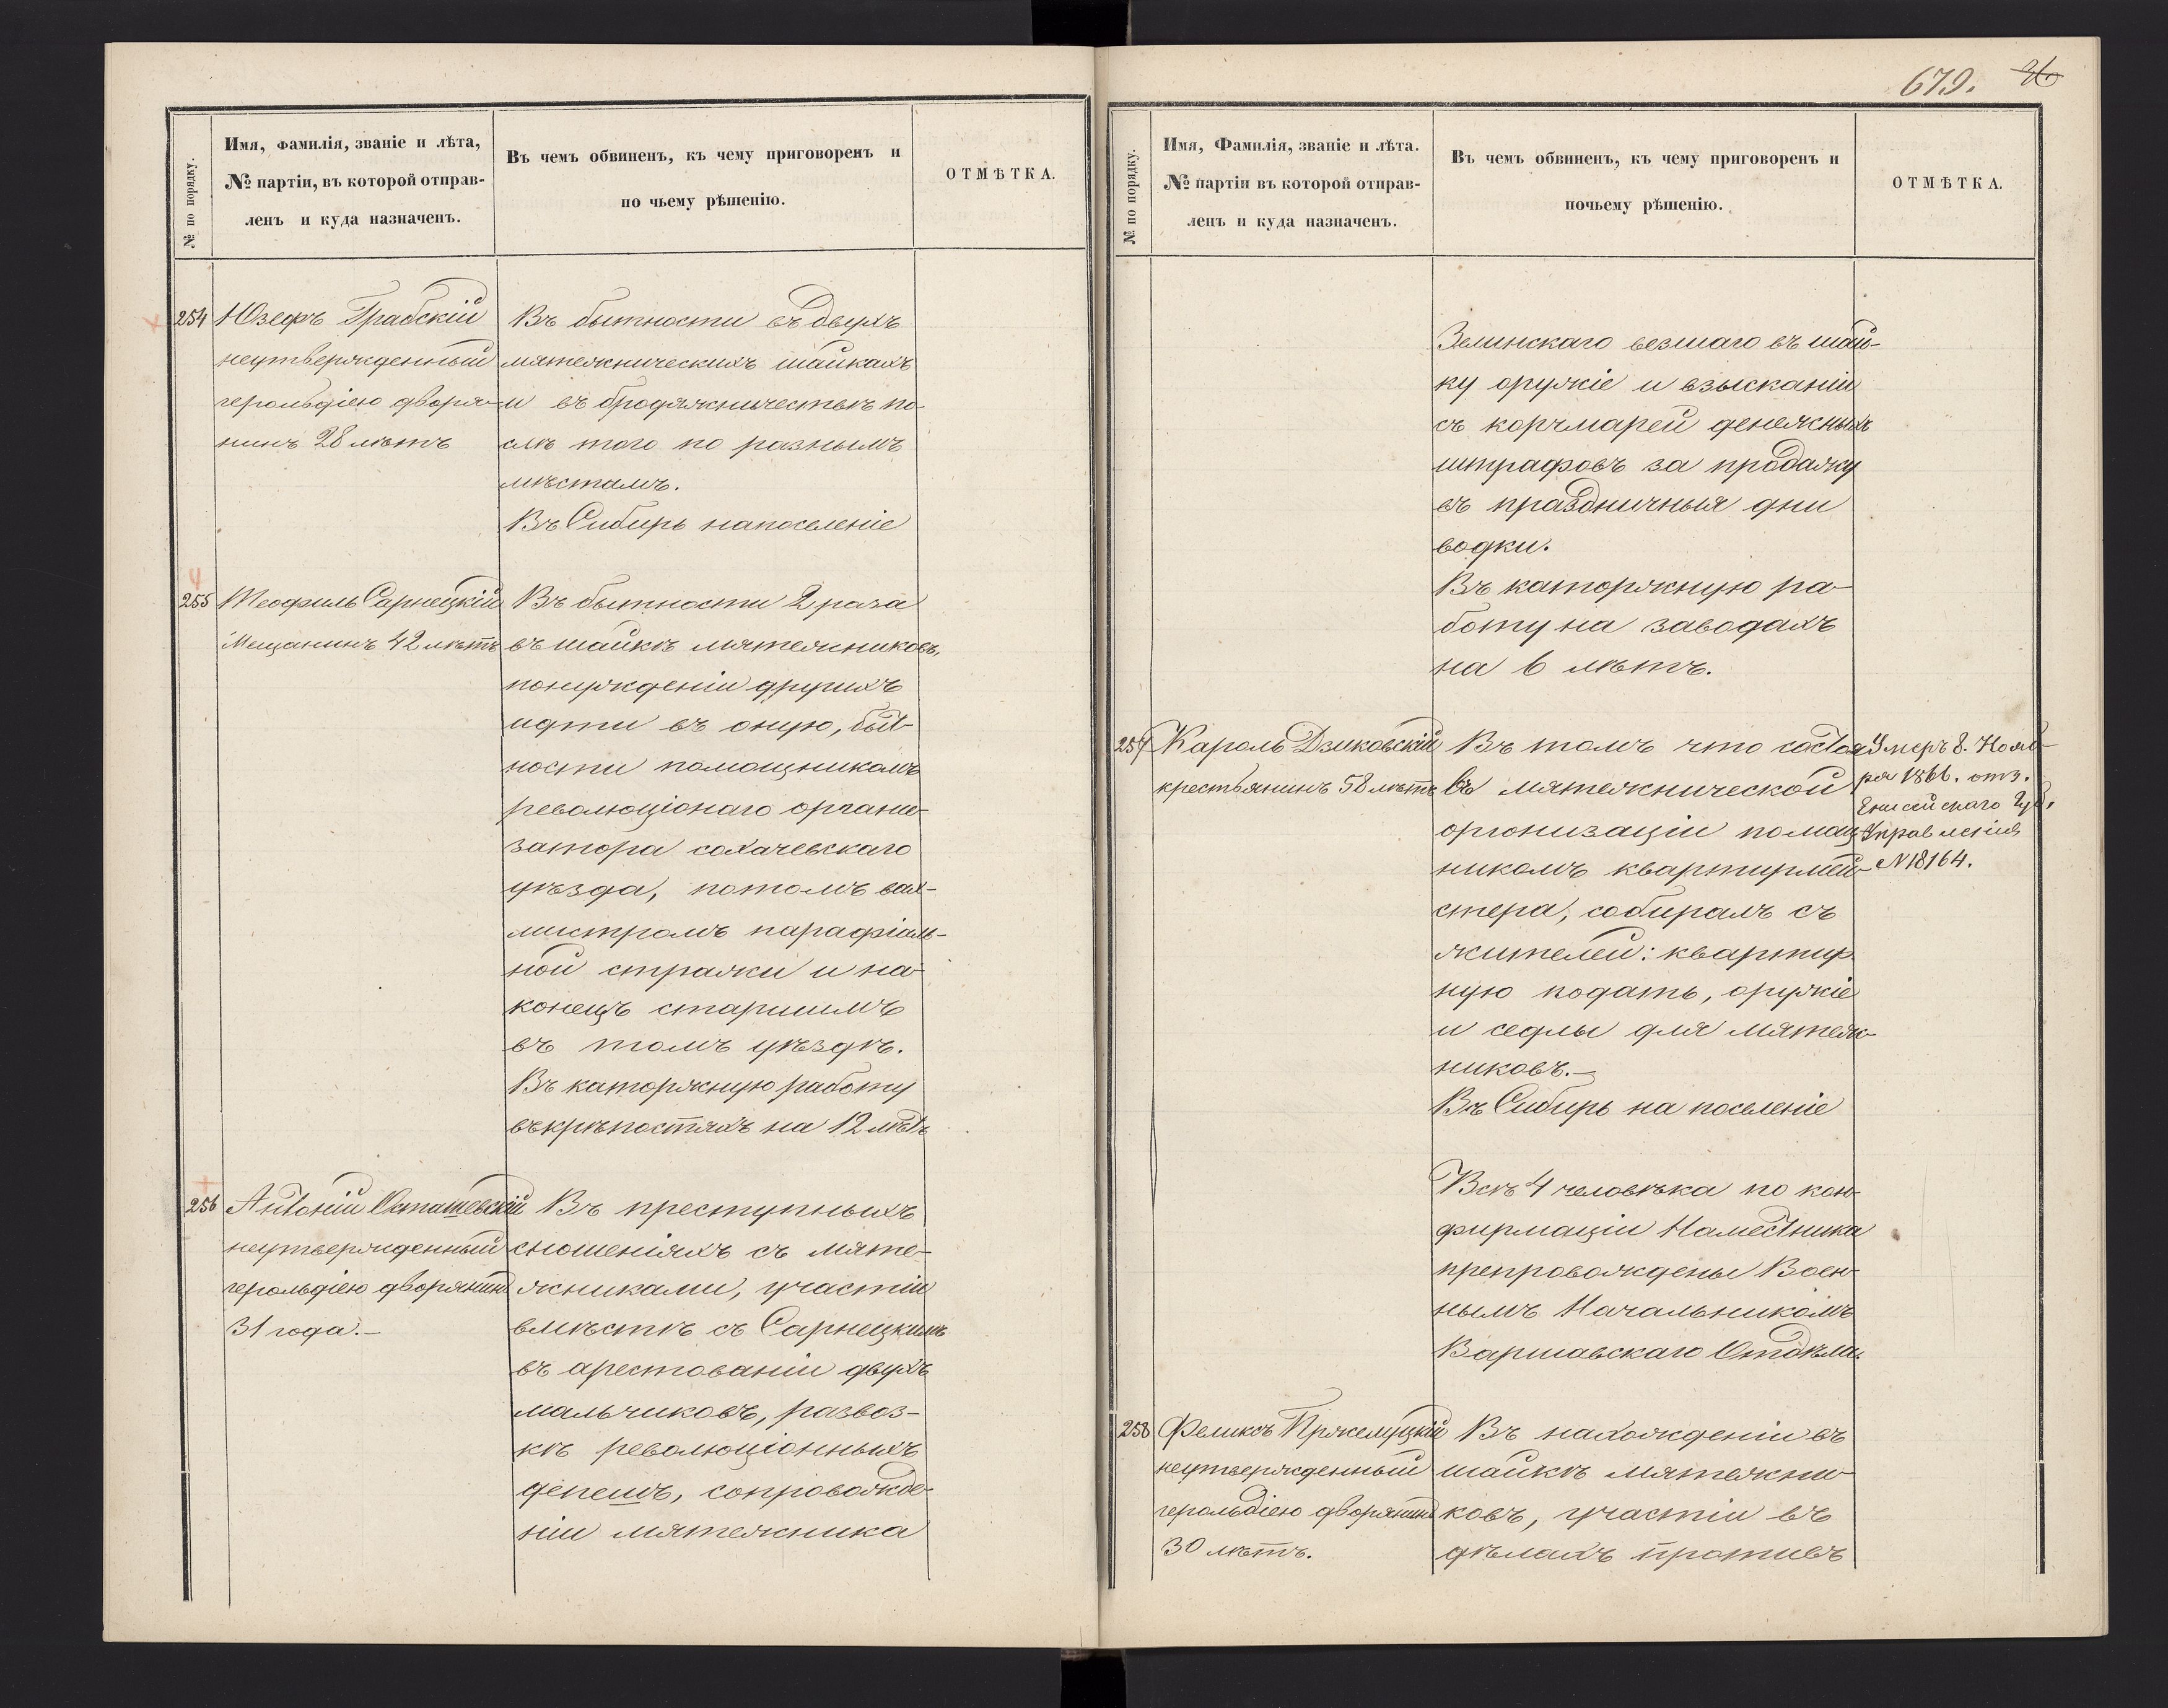 679. 36
№ по порядку.
Имя, фамилія, званіе и лѣта,
№ партіи, въ которой отправ-
ленъ и куда назначенъ.
Въ чемъ обвиненъ, къ чему приговоренъ и
по чьему рѣшенію.
ОТМѢТКА.
254 Юзефъ Грабскій
неутвержденный
герольдіею дворя-
нинъ 28 лѣтъ
Въ бытности въ двухъ
мятежническихъ шайкахъ
и въ бродяжничествѣ по-
слѣ того по разнымъ
мѣстамъ.
Въ Сибирь на поселеніе
255 Теофиль Сарнецкій
Мещанинъ 42 лѣтъ
Въ бытности 2 раза
въ шайкѣ мятежниковъ,
понужденіи другихъ
идти въ оную, быт-
ности помощникомъ
революціонаго органи-
затора сохачевскаго
уѣзда, потомъ вах-
мистромъ парафіаль-
ной стражи и на-
конецъ старшимъ
въ томъ уѣздѣ.
Въ каторжную работу
въ крѣпостяхъ на 12 лѣтъ
256 Антоній Осташевскій
неутвержденный
герольдіею дворянинъ
31 года.—
Въ преступныхъ
сношеніяхъ съ мяте-
жниками, участіи
вмѣстѣ съ Сарнецкимъ
въ арестованіи двухъ
мальчиковъ, развоз-
кѣ революціонныхъ
депешъ, сопровожде-
ніи мятежника
№ по порядку.
Имя, Фамилія, званіе и лѣта.
№ партіи въ которой отправ-
ленъ и куда назначенъ.
Въ чемъ обвиненъ, къ чему приговоренъ и
почьему рѣшенію.
ОТМѢТКА.
Зелинскаго везшаго въ шай-
ку оружіе и взысканіи
съ корчмарей денежныхъ
штрафовъ за продажу
въ праздничныя дни
водки.
Въ каторжную ра-
боту на заводахъ
на 6 лѣтъ.
257 Кароль Дзиковскій
крестьянинъ 58 лѣтъ
Въ томъ что состоя
въ мятежнической
организаціи помощ-
никомъ квартирмей-
стера, собиралъ съ
жителей: квартир-
ную подать, оружіе
и седлы для мятеж-
никовъ.—
Въ Сибирь на поселеніе
Умеръ 8. Нояб-
ря 1866. отз.
Енисейскаго Губ.
Управленія
N 18164.
Всѣ 4 человѣка по кон-
фирмаціи Наместника
препровождены Воен-
нымъ Начальникомъ
Варшавскаго Отдѣла.
258 Феликсъ Пржелуцкій
неутвержденный
герольдіею дворянинъ
30 лѣтъ.
Въ нахожденіи въ
шайкѣ мятежни-
ковъ, участіи въ
дѣлахъ противъ